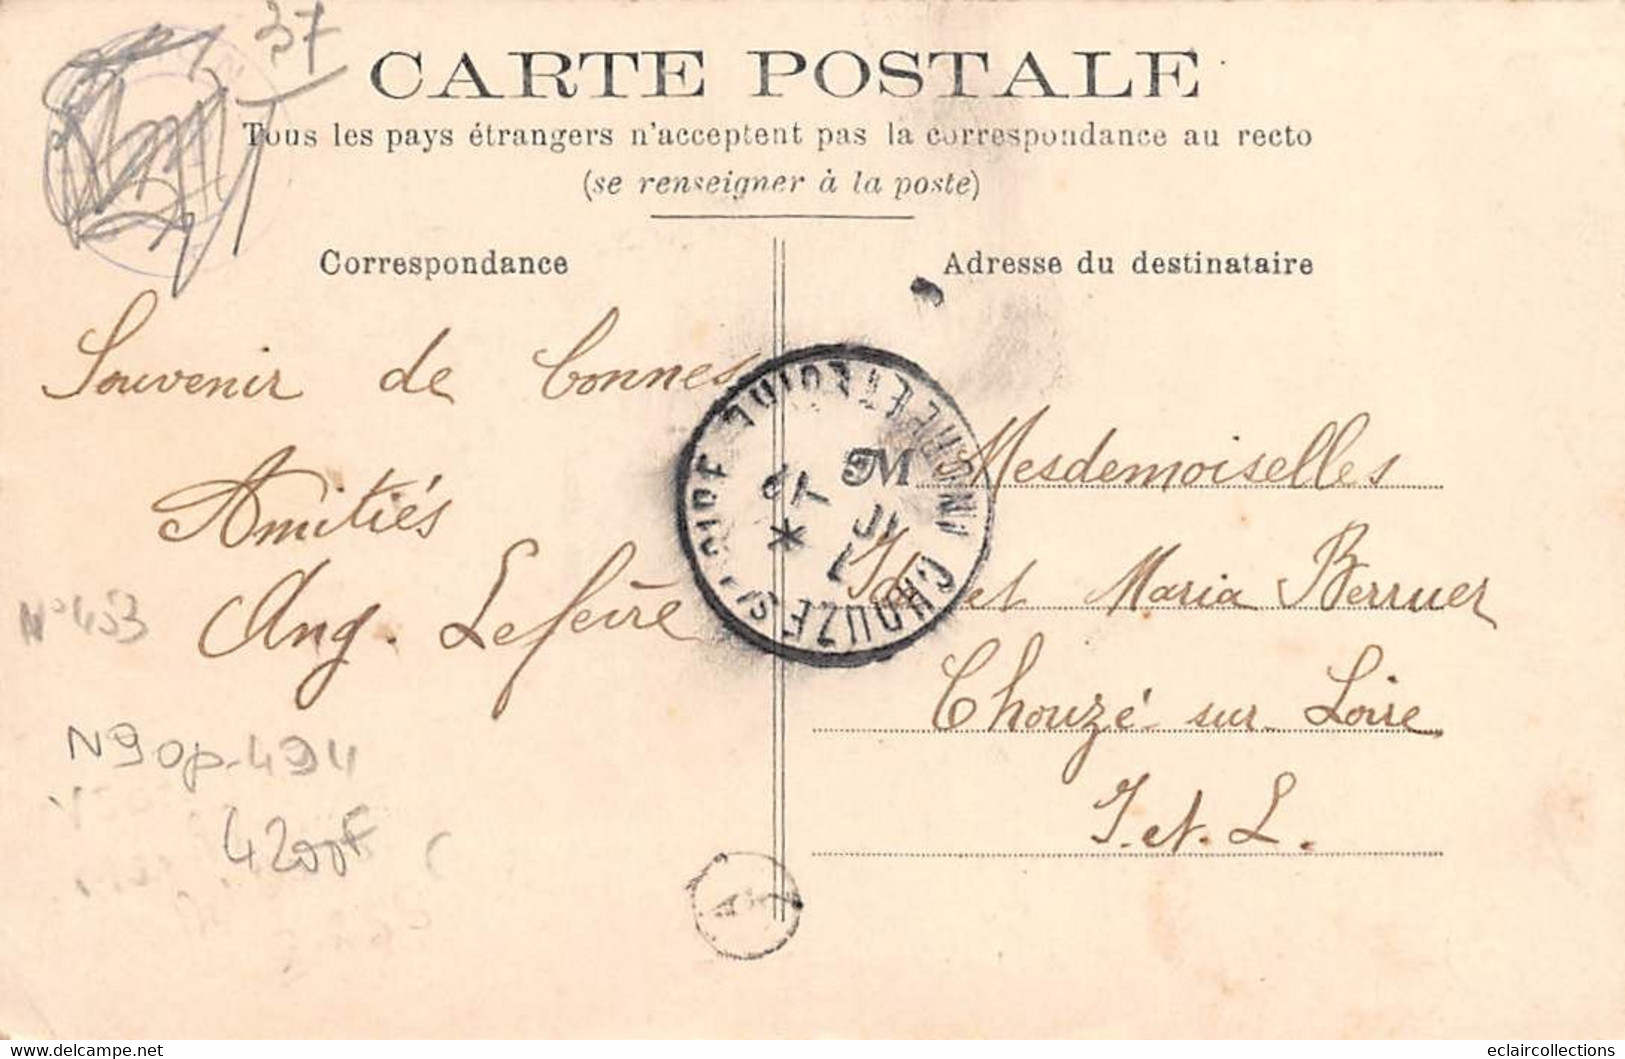 37
CARTE POSTALE
Tous les pays étrangers n'acceptent pas la correspondance au recto
(se renseigner à la poste)
Correspondance
Adresse du destinataire
Souvenir de bonnes
Amitiés
Ang. Lefeire
M Mesdemoiselles
et Maria Berruer
Chouzé sur Loire
I. et. L.
CHOUZE S/ LOIRE INDRE ET LOIRE
N° 453
N90p-494
4200F
A
eclaircollections